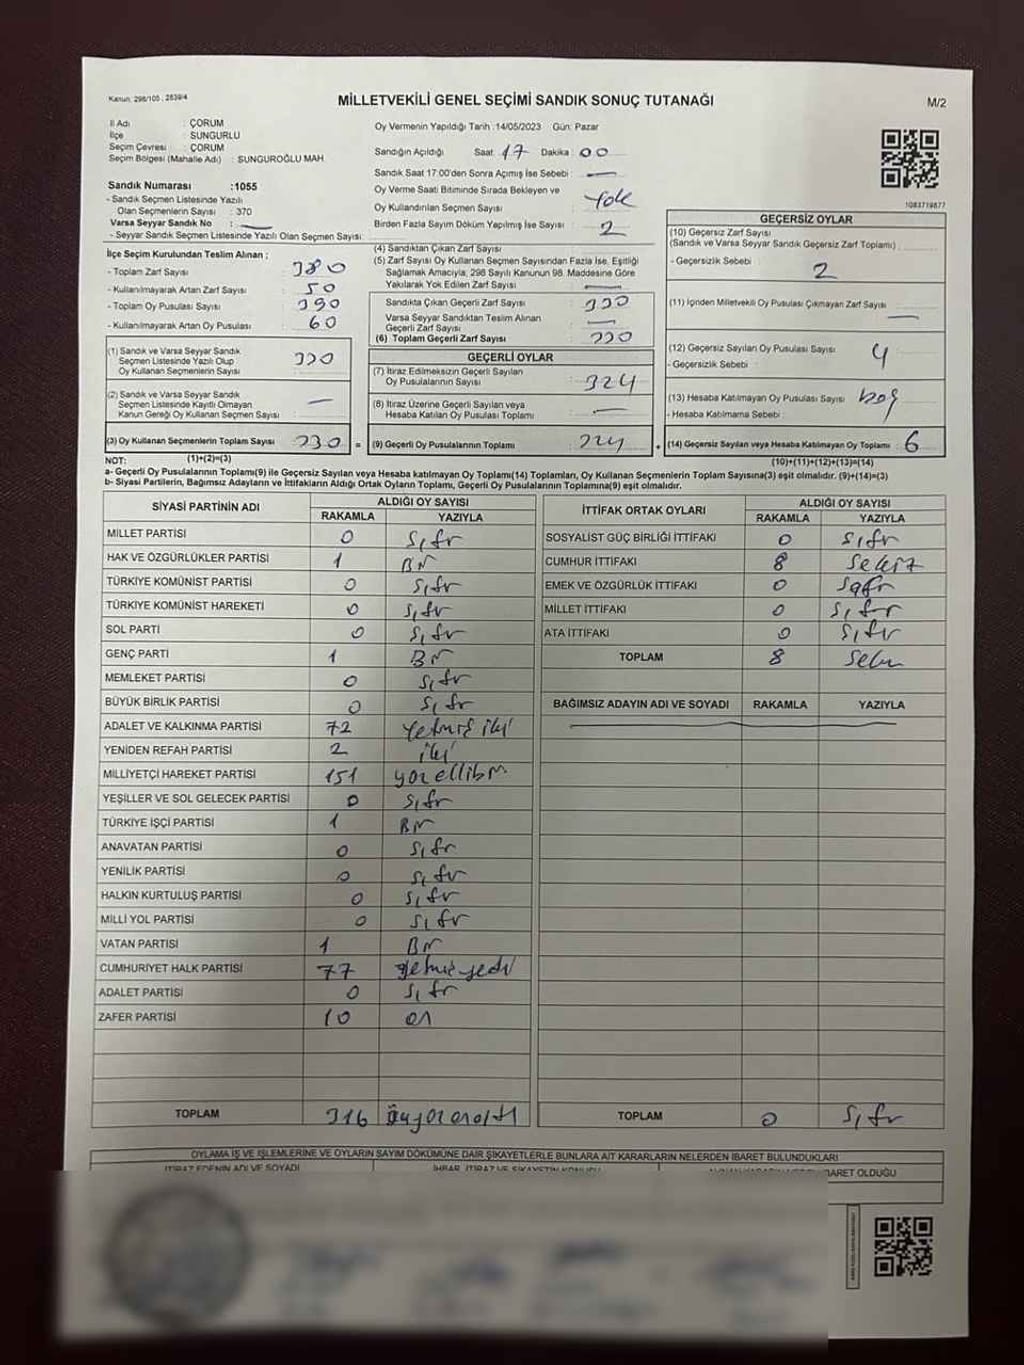 Kanun: 298/105, 2839/4
MİLLETVEKİLİ GENEL SEÇİMİ SANDIK SONUÇ TUTANAĞI
M/2
İl Adı : ÇORUM
İlçe : SUNGURLU
Seçim Çevresi : ÇORUM
Seçim Bölgesi (Mahalle Adı) : SUNGUROĞLU MAH
Oy Vermenin Yapıldığı Tarih :14/05/2023 Gün: Pazar
Sandığın Açıldığı Saat: 17 Dakika : 00
Sandık Saat 17:00'den Sonra Açımış İse Sebebi : —
Oy Verme Saati Bitiminde Sırada Bekleyen ve
Oy Kullandırılan Seçmen Sayısı : Yok
Birden Fazla Sayım Döküm Yapılmış İse Sayısı : 2
1083719877
Sandık Numarası :1055
- Sandık Seçmen Listesinde Yazılı
Olan Seçmenlerin Sayısı : 370
Varsa Seyyar Sandık No : —
- Seyyar Sandık Seçmen Listesinde Yazılı Olan Seçmen Sayısı:
İlçe Seçim Kurulundan Teslim Alınan ;
- Toplam Zarf Sayısı : 380
- Kullanılmayarak Artan Zarf Sayısı : 50
- Toplam Oy Pusulası Sayısı : 390
- Kullanılmayarak Artan Oy Pusulası : 60
(1) Sandık ve Varsa Seyyar Sandık
Seçmen Listesinde Yazılı Olup
Oy Kullanan Seçmenlerin Sayısı : 330
(2) Sandık ve Varsa Seyyar Sandık
Seçmen Listesinde Kayıtlı Olmayan
Kanun Gereği Oy Kullanan Seçmen Sayısı : —
(3) Oy Kullanan Seçmenlerin Toplam Sayısı : 330 =
(1)+(2)=(3)
(4) Sandıktan Çıkan Zarf Sayısı
(5) Zarf Sayısı Oy Kullanan Seçmen Sayısından Fazla İse, Eşitliği
Sağlamak Amacıyla, 298 Sayılı Kanunun 98. Maddesine Göre
Yakılarak Yok Edilen Zarf Sayısı : —
Sandıkta Çıkan Geçerli Zarf Sayısı : 330
Varsa Seyyar Sandıktan Teslim Alınan
Geçerli Zarf Sayısı : —
(6) Toplam Geçerli Zarf Sayısı : 330
GEÇERLİ OYLAR
(7) İtiraz Edilmeksizin Geçerli Sayılan
Oy Pusulalarının Sayısı : 324
(8) İtiraz Üzerine Geçerli Sayılan veya
Hesaba Katılan Oy Pusulası Toplamı : —
(9) Geçerli Oy Pusulalarının Toplamı : 324
GEÇERSİZ OYLAR
(10) Geçersiz Zarf Sayısı
(Sandık ve Varsa Seyyar Sandık Geçersiz Zarf Toplamı)
- Geçersizlik Sebebi : 2
(11) İçinden Milletvekili Oy Pusulası Çıkmayan Zarf Sayısı : —
(12) Geçersiz Sayılan Oy Pusulası Sayısı : 4
- Geçersizlik Sebebi :
(13) Hesaba Katılmayan Oy Pusulası Sayısı : boş
- Hesaba Katılmama Sebebi :
(14) Geçersiz Sayılan veya Hesaba Katılmayan Oy Toplamı : 6
(10)+(11)+(12)+(13)=(14)
NOT:
a- Geçerli Oy Pusulalarının Toplamı(9) ile Geçersiz Sayılan veya Hesaba katılmayan Oy Toplamı(14) Toplamları, Oy Kullanan Seçmenlerin Toplam Sayısına(3) eşit olmalıdır. (9)+(14)=(3)
b- Siyasi Partilerin, Bağımsız Adayların ve İttifakların Aldığı Ortak Oyların Toplamı, Geçerli Oy Pusulalarının Toplamına(9) eşit olmalıdır.
SİYASİ PARTİNİN ADI ALDIĞI OY SAYISI
RAKAMLA YAZIYLA
MİLLET PARTİSİ 0 Sıfır
HAK VE ÖZGÜRLÜKLER PARTİSİ 1 Bir
TÜRKİYE KOMÜNİST PARTİSİ 0 Sıfır
TÜRKİYE KOMÜNİST HAREKETİ 0 Sıfır
SOL PARTİ 0 Sıfır
GENÇ PARTİ 1 Bir
MEMLEKET PARTİSİ 0 Sıfır
BÜYÜK BİRLİK PARTİSİ 0 Sıfır
ADALET VE KALKINMA PARTİSİ 72 Yetmiş iki
YENİDEN REFAH PARTİSİ 2 iki
MİLLİYETÇİ HAREKET PARTİSİ 151 yüz ellibir
YEŞİLLER VE SOL GELECEK PARTİSİ 0 Sıfır
TÜRKİYE İŞÇİ PARTİSİ 1 Bir
ANAVATAN PARTİSİ 0 Sıfır
YENİLİK PARTİSİ 0 Sıfır
HALKIN KURTULUŞ PARTİSİ 0 Sıfır
MİLLİ YOL PARTİSİ 0 Sıfır
VATAN PARTİSİ 1 Bir
CUMHURİYET HALK PARTİSİ 77 yetmiş yedi
ADALET PARTİSİ 0 Sıfır
ZAFER PARTİSİ 10 on
TOPLAM 316 Üçyüz onaltı
İTTİFAK ORTAK OYLARI ALDIĞI OY SAYISI
RAKAMLA YAZIYLA
SOSYALİST GÜÇ BİRLİĞİ İTTİFAKI 0 Sıfır
CUMHUR İTTİFAKI 8 Sekiz
EMEK VE ÖZGÜRLÜK İTTİFAKI 0 Sıfır
MİLLET İTTİFAKI 0 Sıfır
ATA İTTİFAKI 0 Sıfır
TOPLAM 8 Sekiz
BAĞIMSIZ ADAYIN ADI VE SOYADI RAKAMLA YAZIYLA
TOPLAM 0 Sıfır
OYLAMA İŞ VE İŞLEMLERİNE VE OYLARIN SAYIM DÖKÜMÜNE DAİR ŞİKAYETLERLE BUNLARA AİT KARARLARIN NELERDEN İBARET BULUNDUKLARI
İTİRAZ EDENİN ADI VE SOYADI İHBAR, İTİRAZ VE ŞİKAYETİN KONUSU İBARET OLDUĞU